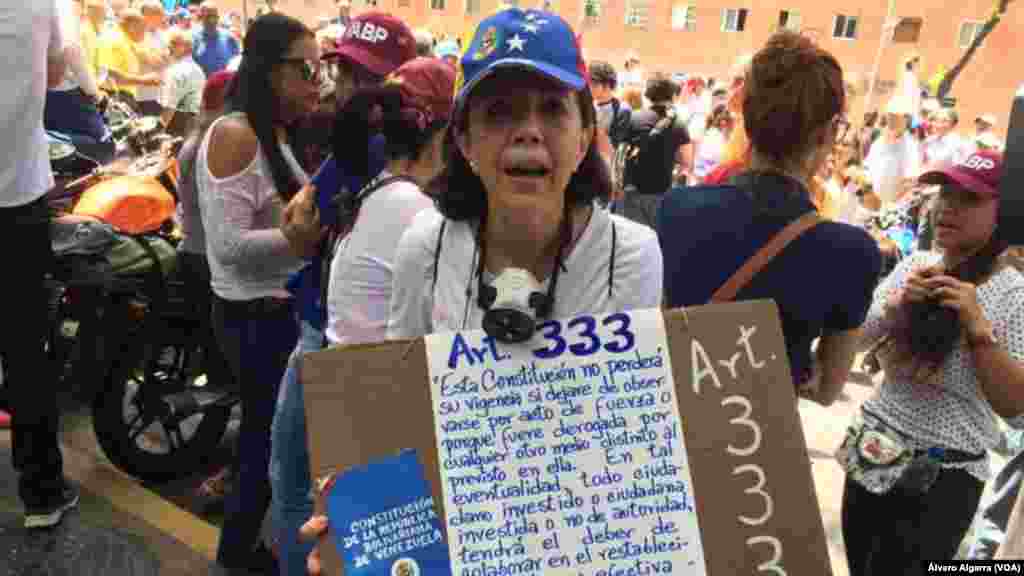 ABP
Art. 333
"Esta Constitución no perderá
su vigencia si dejare de obser
varse por acto de fuerza o
porque fuere derogada por
cualquier otro medio distinto al
previsto en ella. En tal
eventualidad, todo ciuda-
dano investido o ciudadana
investida o no de autoridad,
tendrá el deber de
colaborar en el restableci-
efectiva
CONSTITUCIÓN
DE LA REPÚBLICA
BOLIVARIANA DE
VENEZUELA
Art.
3
3
3
ABP
Álvaro Algarra / VOA